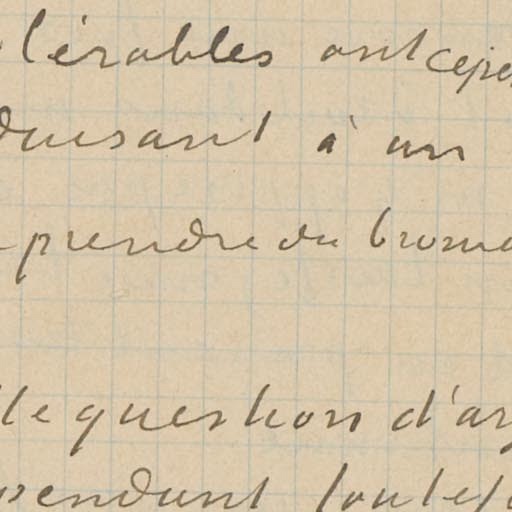 lérables ont cepen
duisant à un
prendre du brome
lle question d'ar
pendant toutes